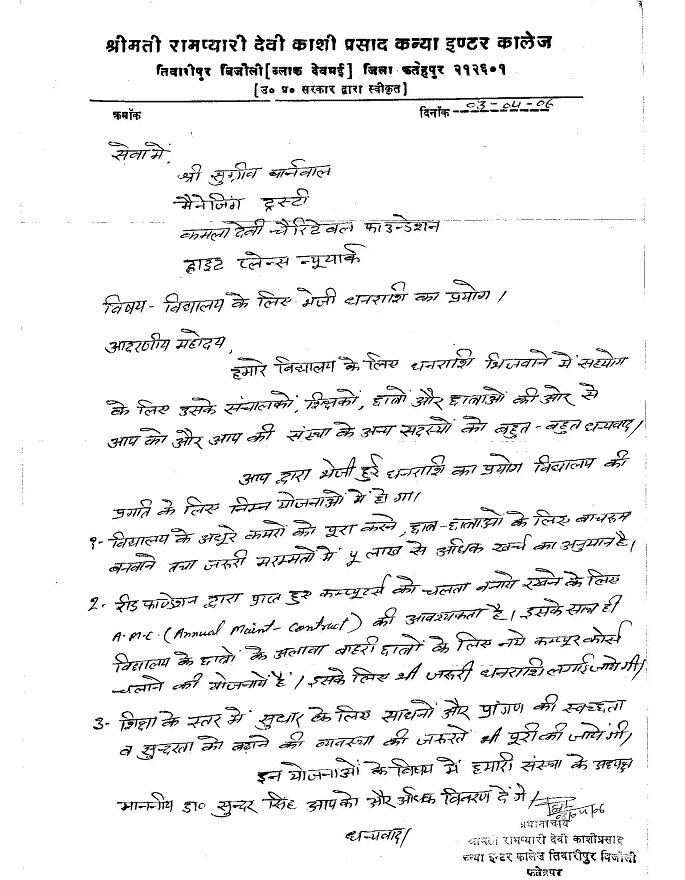 श्रीमती रामप्यारी देवी काशी प्रसाद कन्या इण्टर कालेज
तिवारीपुर बिजौली [ब्लाक देवमई] जिला फतेहपुर २१२६०१
[उ० प्र० सरकार द्वारा स्वीकृत]
क्रमाँक दिनाँक 03-04-06
सेवा में,
श्री सुग्रीव बार्नवाल
मैनेजिंग ट्रस्टी
कमला देवी चैरिटेबल फाउन्डेशन
ह्वाइट प्लेन्स न्यूयार्क
विषय - विद्यालय के लिए भेजी धनराशि का प्रयोग।
आदरणीय महोदय,
हमारे विद्यालय के लिए धनराशि भिजवाने में सहयोग
के लिए उसके संचालकों, शिक्षकों, छात्रों और छात्राओं की ओर से
आप को और आप की संस्था के अन्य सदस्यों को बहुत-बहुत धन्यवाद।
आप द्वारा भेजी हुई धनराशि का प्रयोग विद्यालय की
प्रगति के लिए निम्न योजनाओं में होगा।
१- विद्यालय के अधूरे कमरों को पूरा करने, छात्र-छात्राओं के लिए बाथरूम
बनवाने तथा जरूरी मरम्मतों में ५ लाख से अधिक खर्च का अनुमान है।
2- रीड फाउण्डेशन द्वारा प्राप्त हुए कम्प्यूटर्स को चलता बनाये रखने के लिए
A.M.C (Annual Maint-Contract) की आवश्यकता है। इसके साथ ही
विद्यालय के छात्रों के अलावा बाहरी छात्रों के लिए नये कम्प्यूटर कोर्स
चलाने की योजनायें हैं। इसके लिए भी जरूरी धनराशि लगाई जायेगी।
3- शिक्षा के स्तर में सुधार के लिए साधनों और प्रांगण की स्वच्छता
व सुन्दरता को बढ़ाने की व्यवस्था की जरूरतें भी पूरी की जायेंगी।
इन योजनाओं के विषय में हमारी संस्था के अध्यक्ष
माननीय डा० सुन्दर सिंह आपको और अधिक विवरण देंगे।
धन्यवाद।
प्रधानाचार्य
श्रीमती रामप्यारी देवी काशीप्रसाद
कन्या इन्टर कालेज तिवारीपुर बिजौली
फतेहपुर